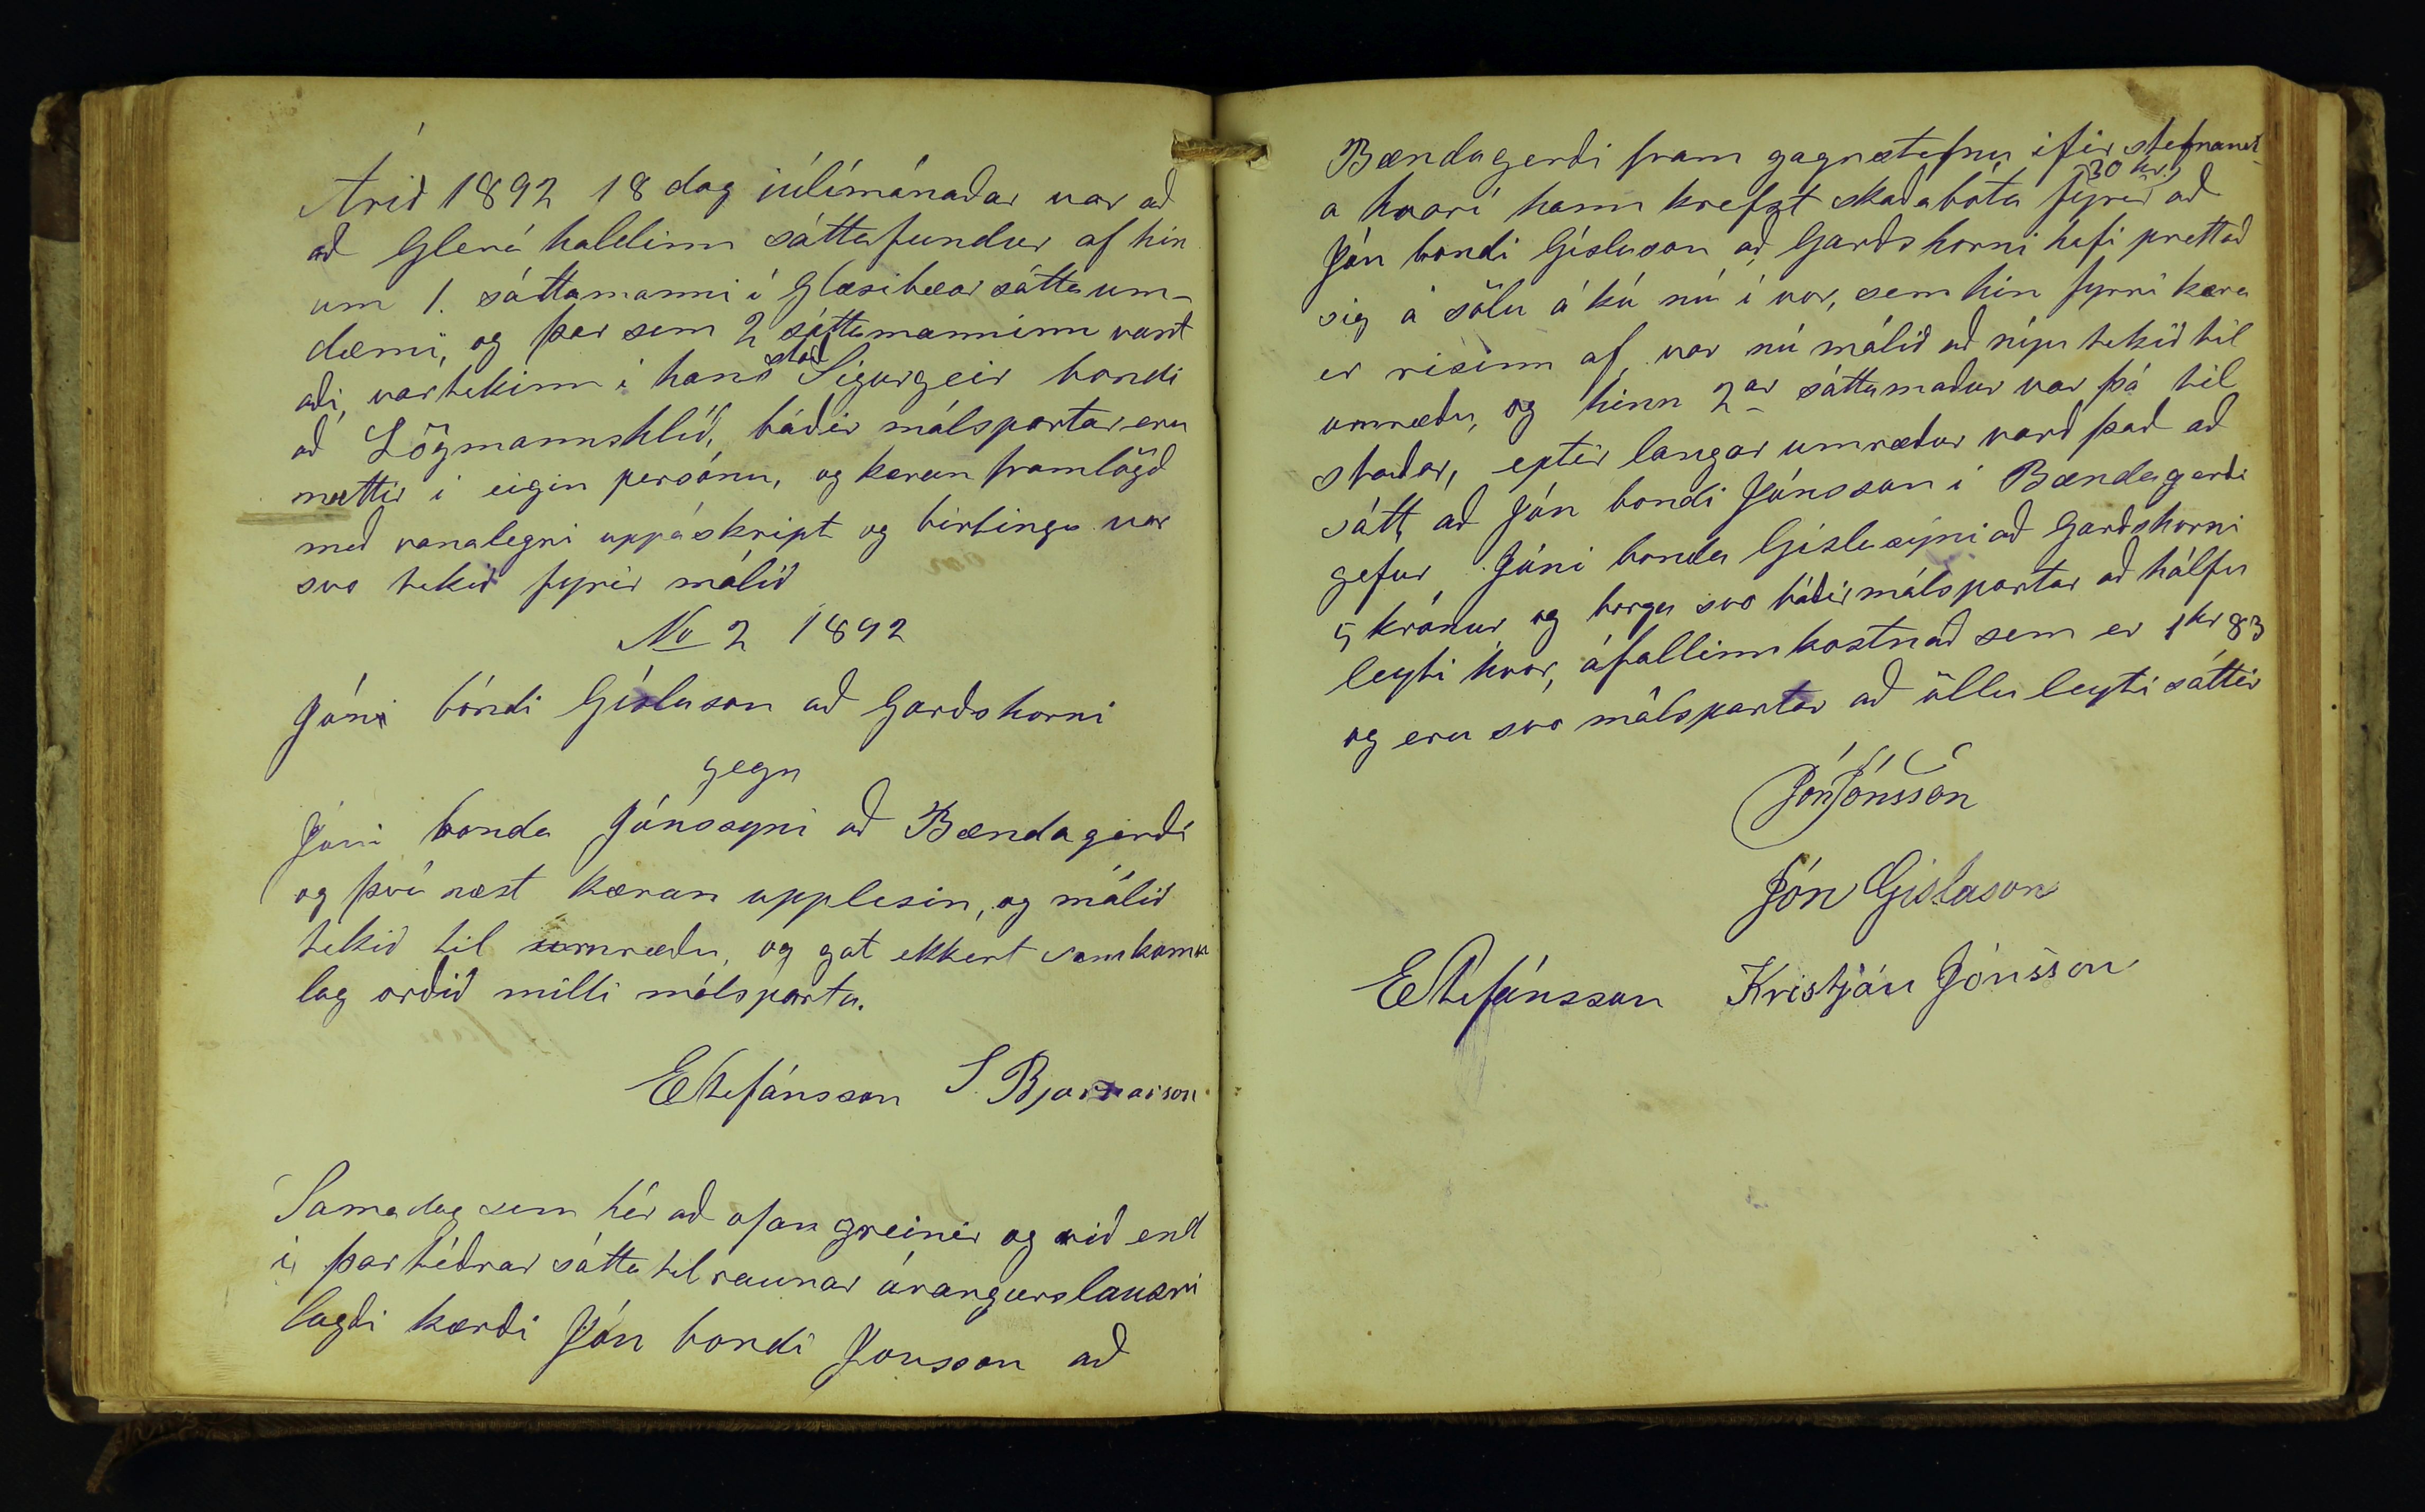 Árið 1892 18 dag júlímánaðar var að
að Glerá haldinn sáttafundur af hin
um 1. sáttamanni í Glæsibæar sátta um-
dæmi, og þar sem 2 sáttamanninn vant
aði, var tekinn í hans stað Sigurgeir bondi
að Lögmannshlíð, báðir málspartar eru
mættir í eigin persónu, og kæran framlögð
með vanalegri uppáskript og birtingu var
svo tekið fyrir málið
No 2 1892
Jón bóndi Gísluson að Garðshorni
gegn
Jóni bonda Jónssyni að Bændagerði
og því næst kæran upplesin, og málið
tekið til umræðu, og gat ekkert samkomu
lag orðið milli málsparta.
EStefánsson S. Bjarnason
Sama dag sem hér að ofan greinir og við end
i þar téðrar sátta tilraunar árangurslausri
lagði kærði Jón bondi Jonsson að
Bændagerði fram gagnstefnu ifir stefnand
a hvarí hann krefzt skaðabóta 30 kr. fyrir að
Jón bondi Gísluson að Garðshorni hafi prettað
sig á sölu á kú nú í vor, sem hin fyrri kæra
er risinn af, var nú málið að nýju tekið til
umræðu, og hinn 2ar sáttamaður var þá til
staðar, eptir langar umræður varð það að
sátt, að Jón bondi Jónsson í Bændagerði
gefur Jóni bonda Gíslusyni að Garðshorni
5 krónur og borga svo báðir málspartar að hálfu
leyti hvor, áfallinn kostnað sem er 1 kr 83
og eru svo málspartar að öllu leyti sáttir
Jón Jónsson
Jón Gislason
EStefánsson Kristján Jónsson